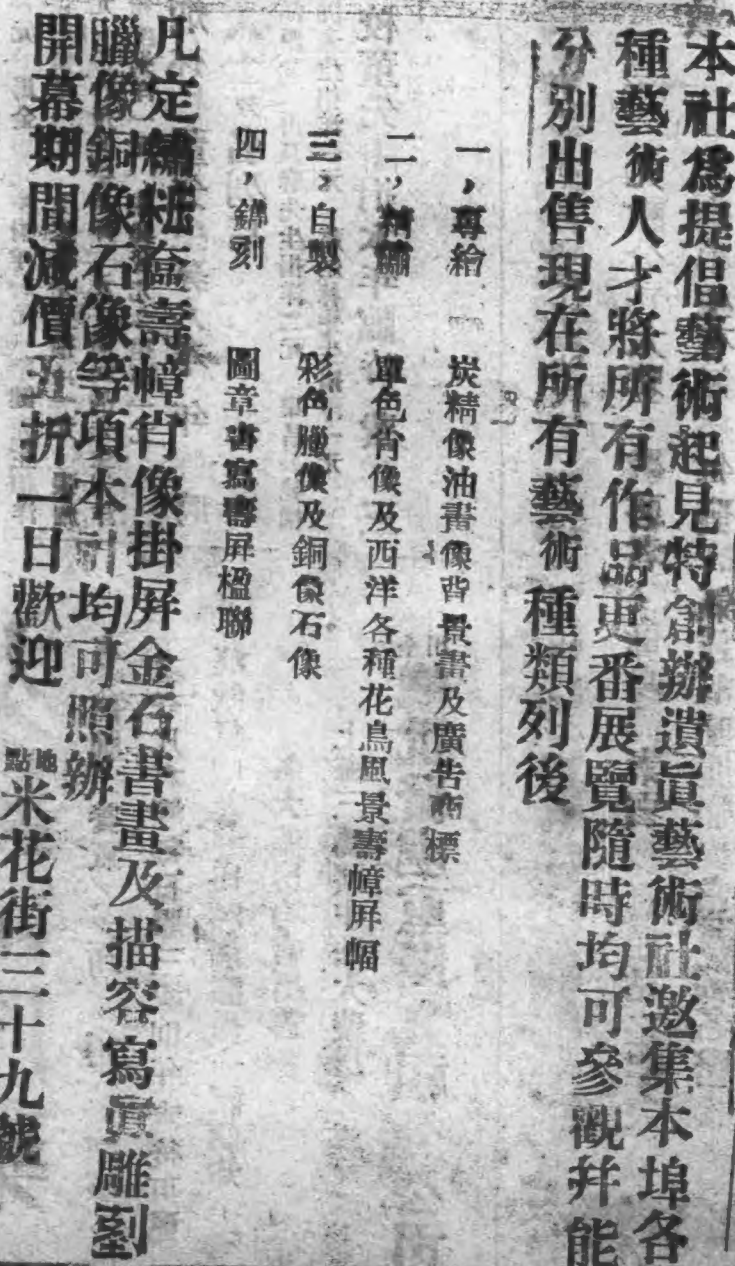 本社爲提倡藝術起見特創辦遺眞藝術社邀集本埠各
種藝術人才將所有作品更番展覽隨時均可參觀幷能
分別出售現在所有藝術種類列後
一，專繪　炭精像油畫像背景畫及廣告商標
二，精繡　單色肖像及西洋各種花鳥風景壽幛屏幅
三，自製　彩色臘像及銅像石像
四，鐫刻　圖章書寫壽屏楹聯
凡定繡粧奩壽幛肖像掛屏金石書畫及描容寫眞雕刻
臘像銅像石像等項本社均可照辦
開幕期間減價五折一日歡迎
地點米花街三十九號